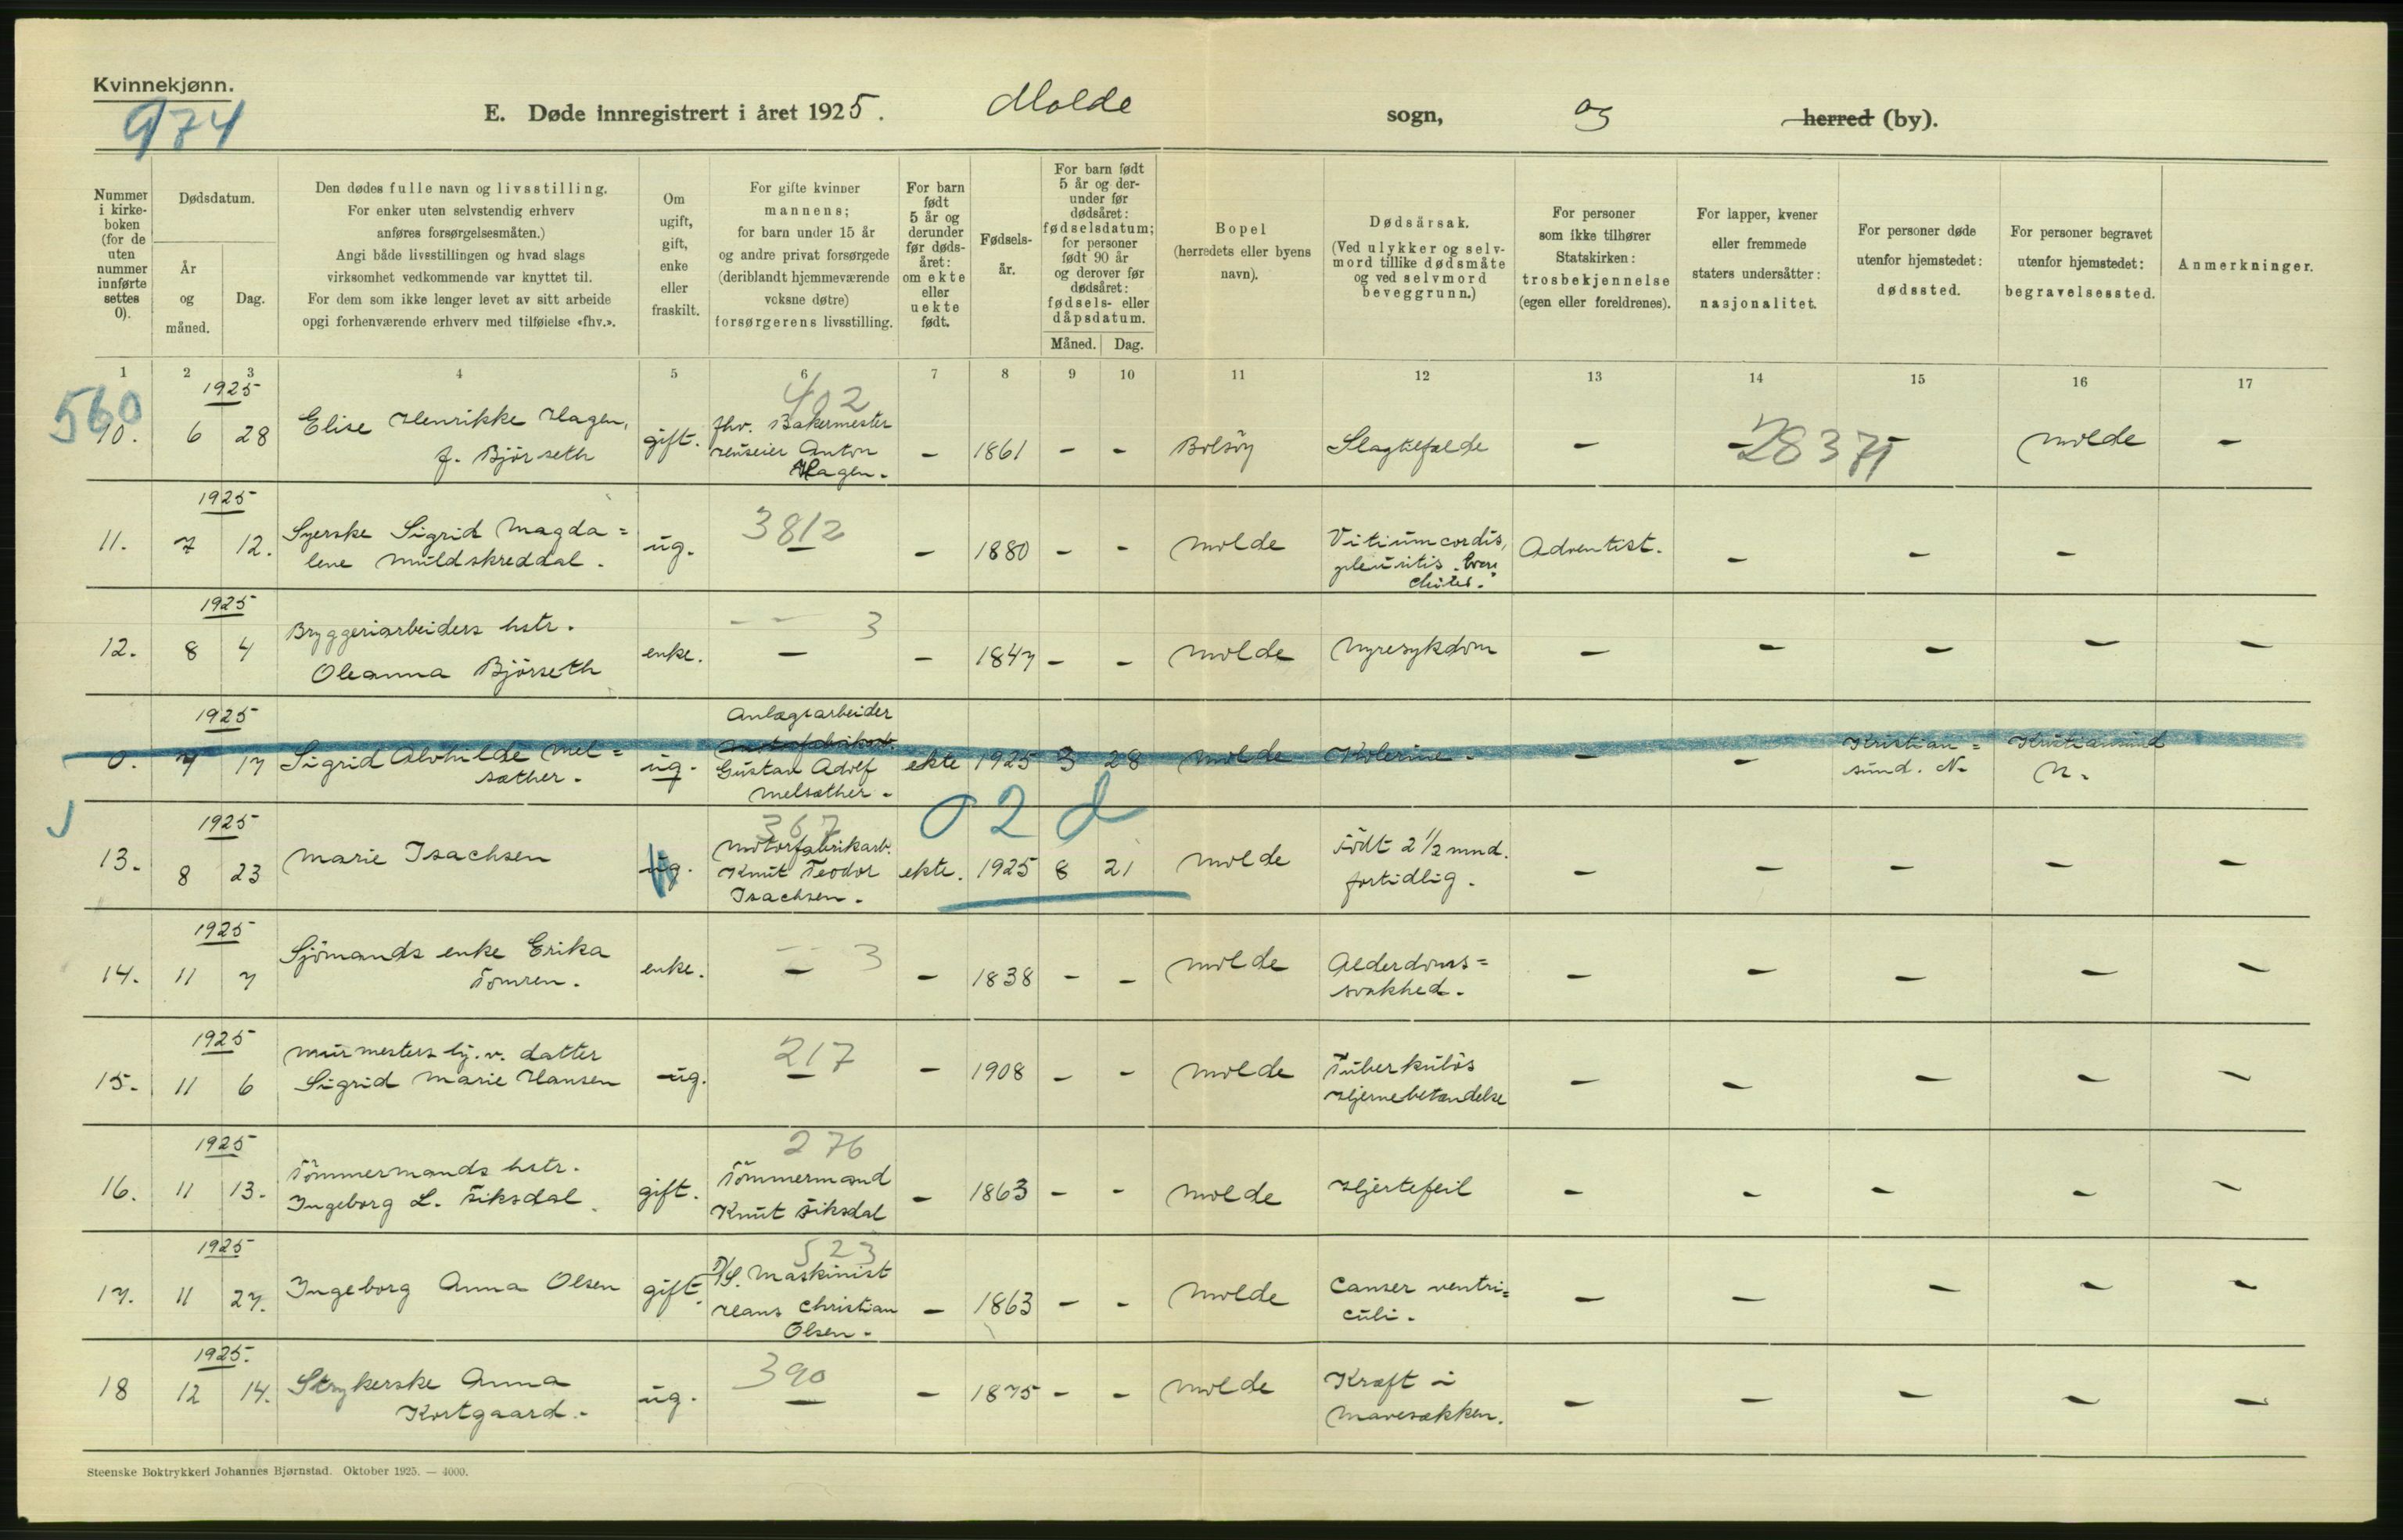 Kvinnekjønn.
974
E. Døde innregistrert i året 1925. Molde sogn, og herred (by).
Nummer i kirkeboken (for de uten nummer innførte settes 0).
Dødsdatum.
År og måned.
Dag.
Den dødes fulle navn og livsstilling.
For enker uten selvstendig erhverv
anføres forsørgelsesmåten.)
Angi både livsstillingen og hvad slags
virksomhet vedkommende var knyttet til.
For dem som ikke lenger levet av sitt arbeide
opgi forhenværende erhverv med tilføielse «fhv.».
Om ugift, gift, enke eller fraskilt.
For gifte kvinner
mannens;
for barn under 15 år
og andre privat forsørgede
(deriblandt hjemmeværende
voksne døtre)
forsørgerens livsstilling.
For barn født 5 år og derunder før dødsåret: om ekte eller uekte født.
Fødselsår.
For barn født 5 år og derunder før dødsåret: fødselsdatum; for personer født 90 år og derover før dødsåret: fødsels- eller dåpsdatum.
Måned. Dag.
Bopel
(herredets eller byens
navn).
Dødsårsak.
(Ved ulykker og selvmord tillike dødsmåte og ved selvmord beveggrunn.)
For personer
som ikke tilhører
Statskirken:
trosbekjennelse
(egen eller foreldrenes).
For lapper, kvener
eller fremmede
staters undersåtter:
nasjonalitet.
For personer døde
utenfor hjemstedet:
dødssted.
For personer begravet
utenfor hjemstedet:
begravelsessted.
Anmerkninger.
1 2 3 4 5 6 7 8 9 10 11 12 13 14 15 16 17
560
1925 402
10. 6 28 Elise Henrikke Hagen, f. Björseth gift. fhv. Bakermester Huseier Anton Hagen. - 1861 - - Bolsöy Slagtilfælde - - 28371 - Molde -
1925 3812
11. 7 12. Syerske Sigrid Magda= lene Muldskreddal. ug. - - 1880 - - Molde Vitium cordis, pleuritis. Adventist. - - -
1925 -- 3
12. 8 4 Bryggeriarbeiders hstr. Oleanna Björseth enke. - - 1847 - - Molde Nyresykdom - - - - -
1925
0. 7 17 Sigrid Alvhilde Mel= sæther. ug. Anlægsarbeider Gustav Adolf Melsæther. ekte 1925 3 28 Molde Kolerine. - - Kristian= sund. N. Kristiansund N.
02 d
1925 367
13. 8 23 Marie Isachsen ug. Motorfabrikarb. Knut Teodor Isachsen. ekte. 1925 8 21 Molde Födt 2 1/2 mnd. fortidlig. - - - - -
1925 -- 3
14. 11 7 Sjömands enke Erika Tomren. enke. - - 1838 - - Molde Alderdoms= svakhed. - - - - -
1925 217
15. 11 6 Murmesters hj.v. datter Sigrid Marie Hansen ug. - - 1908 - - Molde Tuberkulös Hjernebetændelse - - - - -
1925 276
16. 11 13. Tömmermands hstr. Ingeborg L. Fiksdal. gift. Tömmermand Knut Fiksdal - 1863 - - Molde Hjertefeil - - - - -
1925 523
17. 11 27. Ingeborg Anna Olsen gift. D/S. Maskinist Hans Christian Olsen. - 1863 - - Molde Canser ventri= culi. - - - - -
1925. 390
18 12 14. Strykerske Anna Kortgaard. ug. - - 1875 - - Molde Kræft i Mavesækken. - - - - -
Steenske Boktrykkeri Johannes Bjørnstad. Oktober 1925. — 4000.